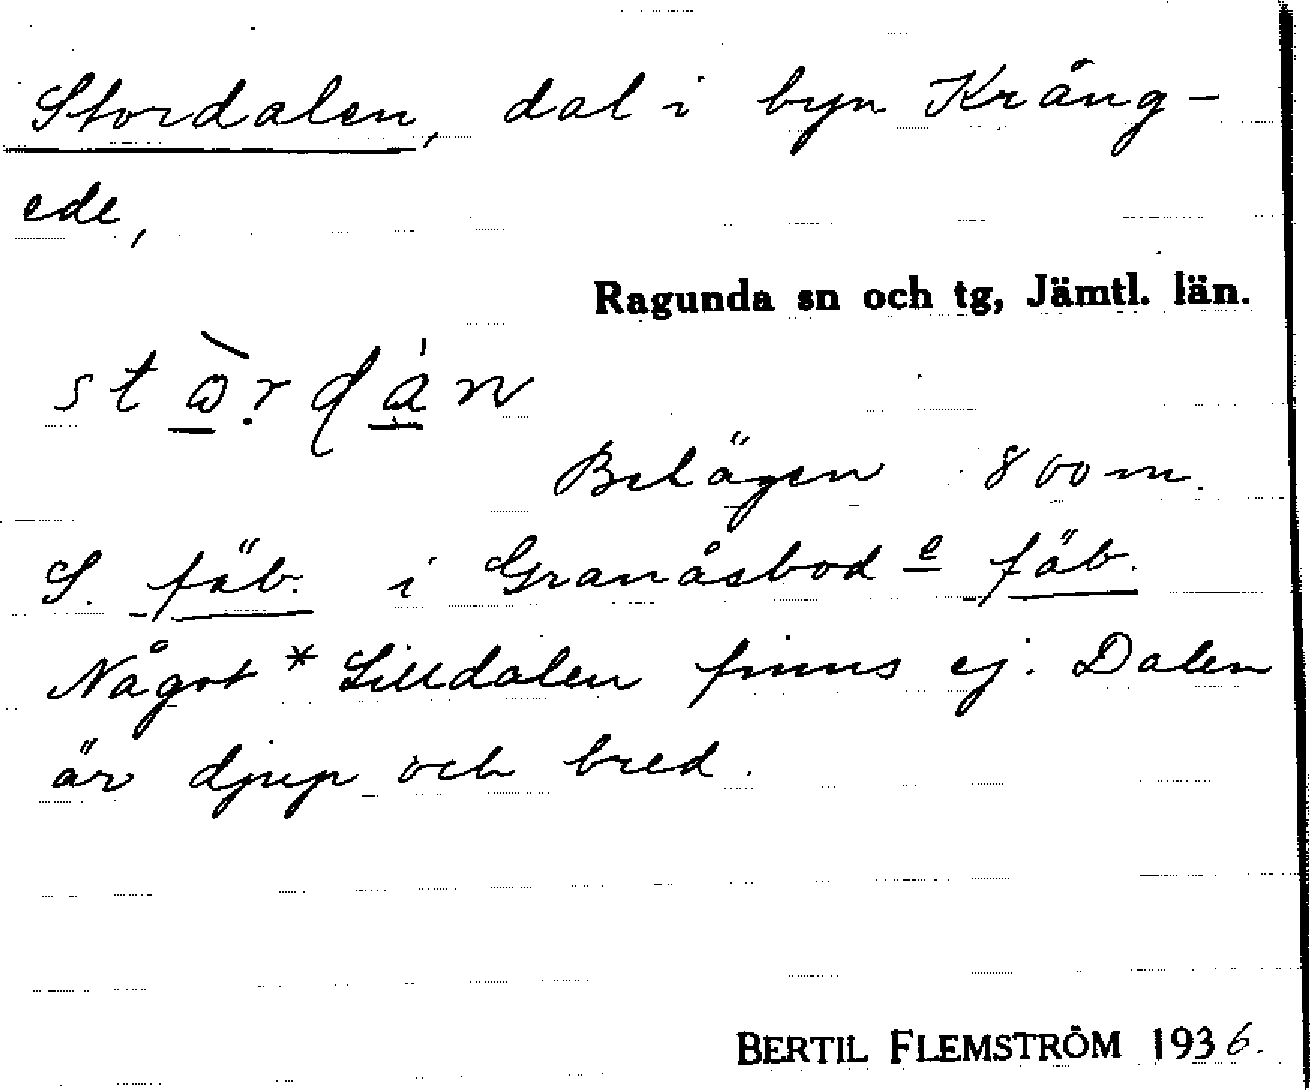 Stordalen, dal i byn Kräng-
ede,
Ragunda sn och tg, Jämtl. län.
Belägen 800 m.
S. fäb. i Granåsbod e fäb.
Något * Lilldalen finns ej. Dalen
är djup och bred.
BERTIL FLEMSTRÖM 1936.